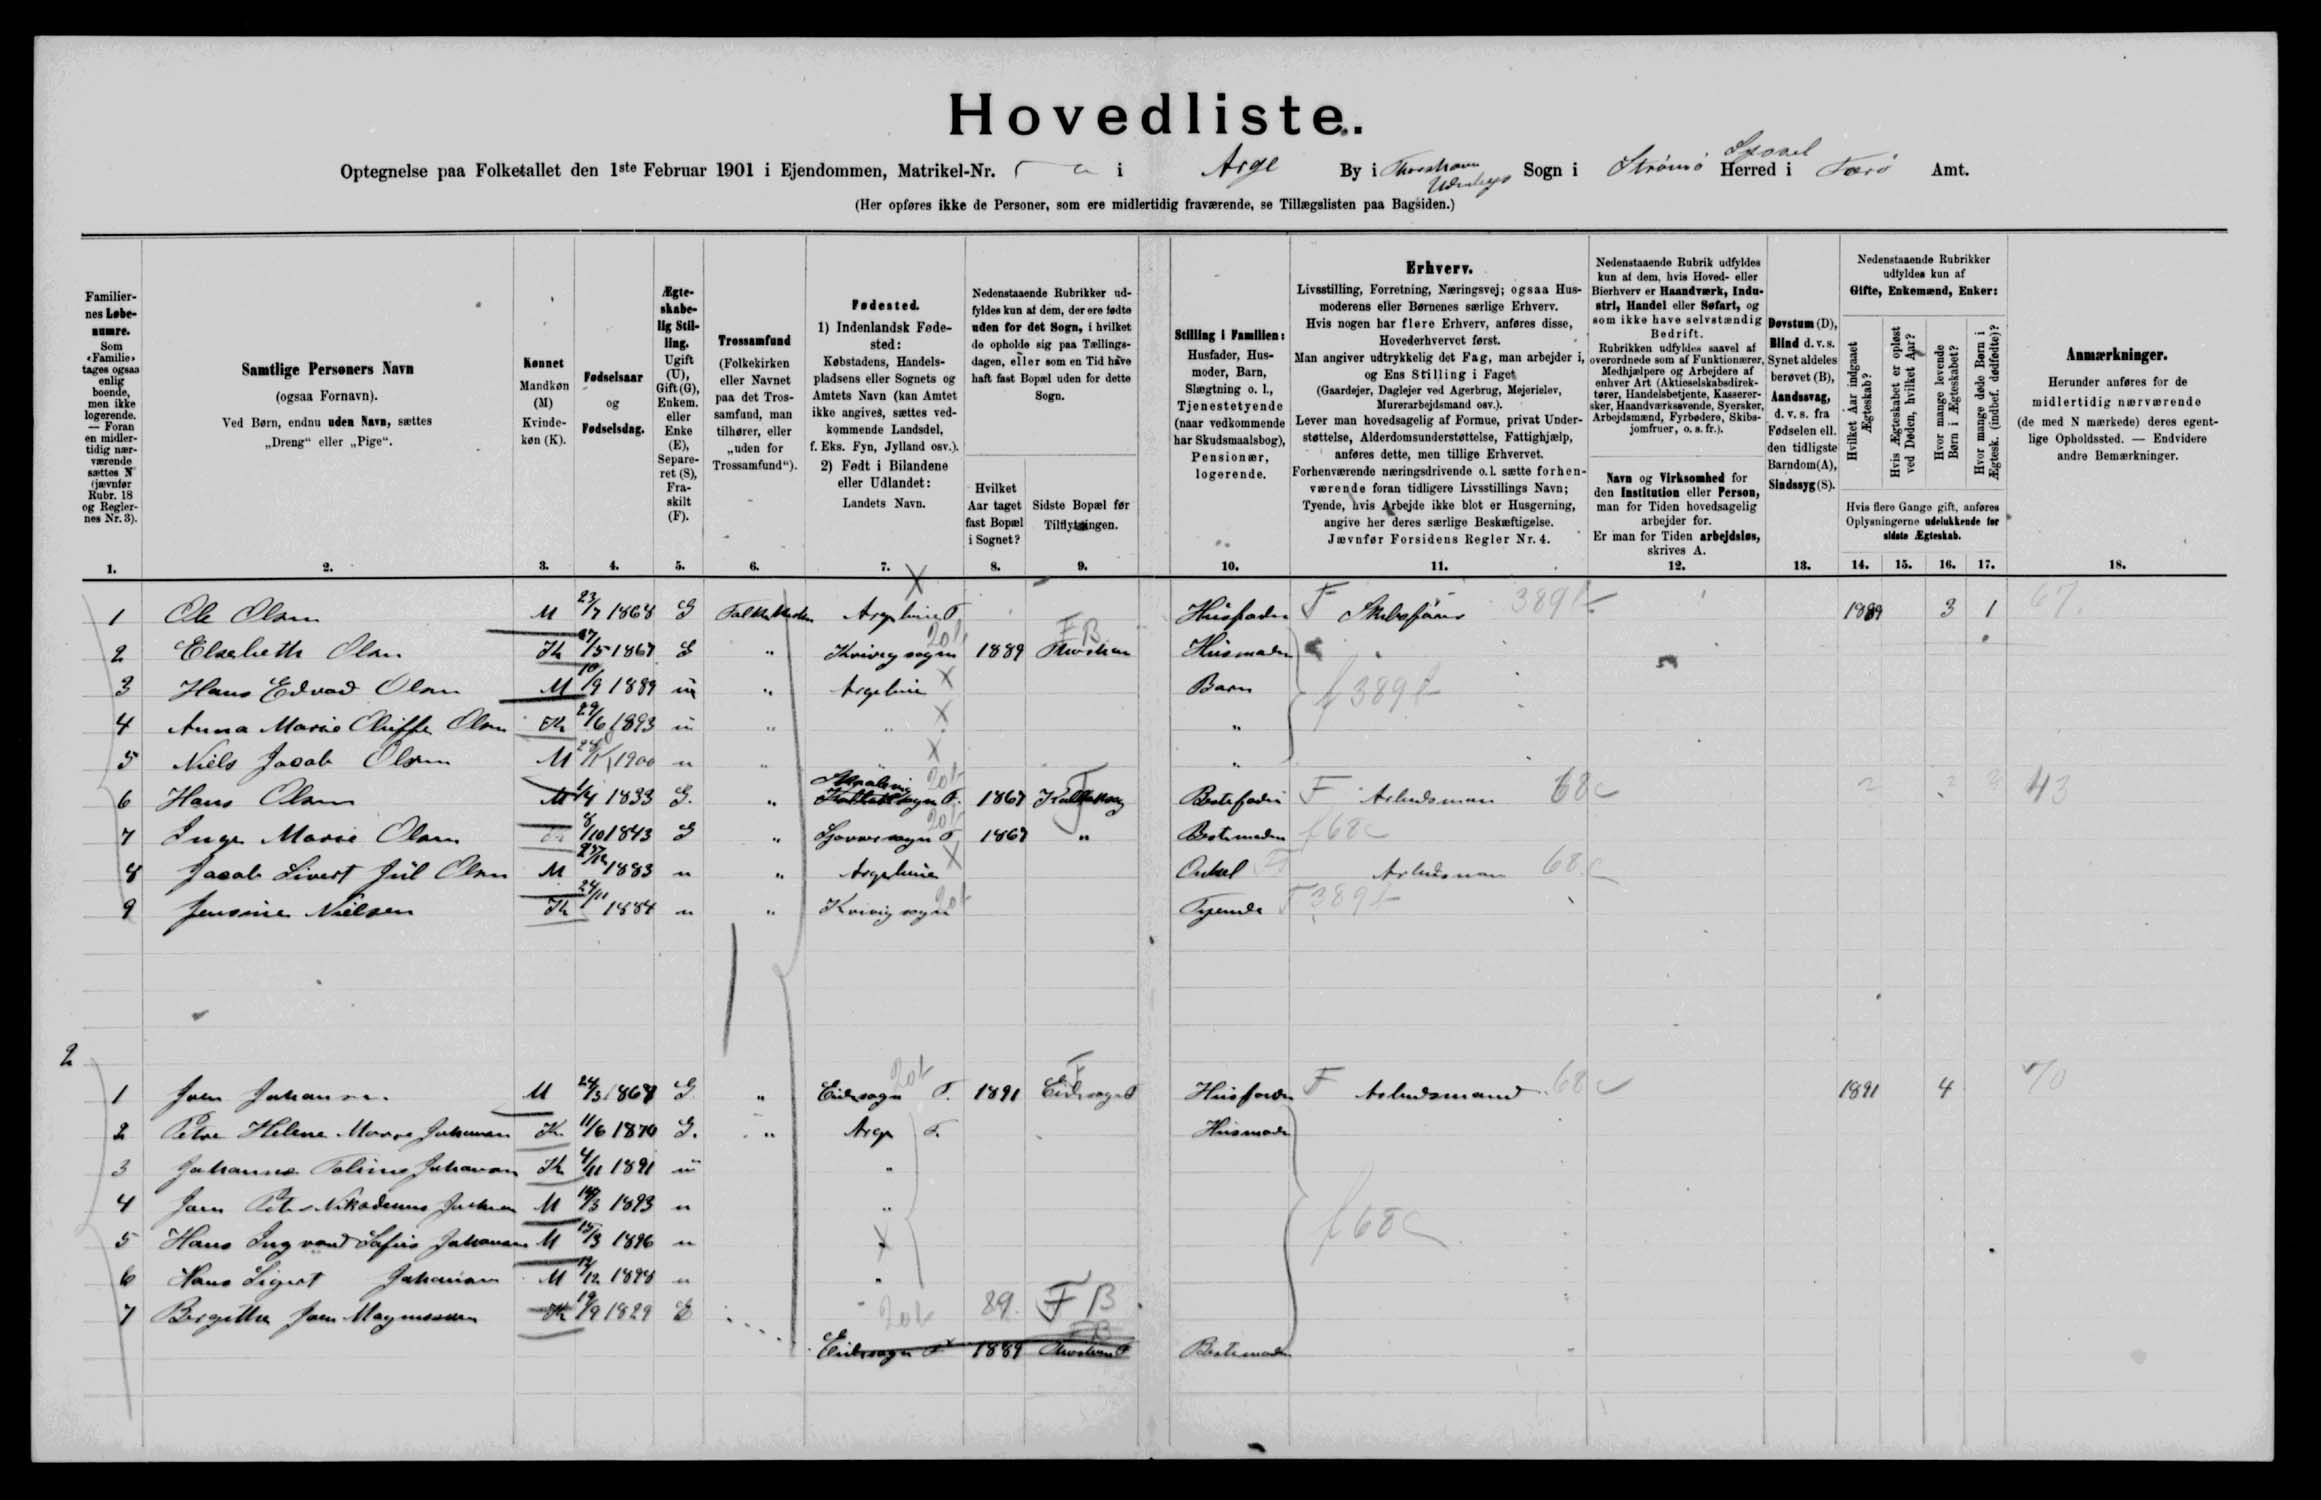 Hovedliste.
Optegnelse paa Folketallet den 1ste Februar 1901 i Ejendommen, Matrikel-Nr. i Arge By i Thorshavn Udenbygs Sogn i Strömö Herred i Færö Amt.
(Her opføres ikke de Personer, som ere midlertidig fraværende, se Tillægslisten paa Bagsiden.)
Familiernes Løbenumre.
Som «Familie» tages ogsaa enlig boende, men ikke logerende. — Foran en midlertidig nærværende sættes N (jævnfør Rubr. 18 og Reglernes Nr. 3).
1.
Samtlige Personers Navn
(ogsaa Fornavn).
Ved Børn, endnu uden Navn, sættes
„Dreng“ eller „Pige“.
2.
Kønnet
Mandkøn (M)
Kvindekøn (K).
3.
Fødselsaar
og
Fødselsdag.
4.
Ægteskabelig Stilling.
Ugift (U), Gift (G), Enkem. eller Enke (E), Separeret (S), Fraskilt (F).
5.
Trossamfund
(Folkekirken eller Navnet paa det Trossamfund, man tilhører, eller „uden for Trossamfund“).
6.
Fødested.
1) Indenlandsk Fødested:
Købstadens, Handelspladsens eller Sognets og Amtets Navn (kan Amtet ikke angives, sættes vedkommende Landsdel, f. Eks. Fyn, Jylland osv.).
2) Født i Bilandene eller Udlandet:
Landets Navn.
7.
Nedenstaaende Rubrikker udfyldes kun af dem, der ere fødte uden for det Sogn, i hvilket de opholde sig paa Tællingsdagen, eller som en Tid have haft fast Bopæl uden for dette Sogn.
Hvilket Aar taget fast Bopæl i Sognet?
8.
Sidste Bopæl før Tilflytningen.
9.
Stilling i Familien:
Husfader, Husmoder, Barn, Slægtning o. l., Tjenestetyende (naar vedkommende har Skudsmaalsbog), Pensionær, logerende.
10.
Erhverv.
Livsstilling, Forretning, Næringsvej; ogsaa Husmoderens eller Børnenes særlige Erhverv.
Hvis nogen har flere Erhverv, anføres disse, Hovederhvervet først.
Man angiver udtrykkelig det Fag, man arbejder i, og Ens Stilling i Faget
(Gaardejer, Daglejer ved Agerbrug, Mejerielev, Murerarbejdsmand osv.).
Lever man hovedsagelig af Formue, privat Understøttelse, Alderdomsunderstøttelse, Fattighjælp, anføres dette, men tillige Erhvervet.
Forhenværende næringsdrivende o.l. sætte forhenværende foran tidligere Livsstillings Navn;
Tyende, hvis Arbejde ikke blot er Husgerning, angive her deres særlige Beskæftigelse.
Jævnfør Forsidens Regler Nr. 4.
11.
Nedenstaaende Rubrik udfyldes kun af dem, hvis Hoved- eller Bierhverv er Haandværk, Industri, Handel eller Søfart, og som ikke have selvstændig Bedrift.
Rubrikken udfyldes saavel af overordnede som af Funktionærer, Medhjælpere og Arbejdere af enhver Art (Aktieselskabsdirektører, Handelsbetjente, Kasserersker, Haandværkssvende, Syersker, Arbejdsmænd, Fyrbødere, Skibsjomfruer, o. s. fr.).
Navn og Virksomhed for den Institution eller Person, man for Tiden hovedsagelig arbejder for.
Er man for Tiden arbejdsløs, skrives A.
12.
Døvstum (D), Blind d. v. s. Synet aldeles berøvet (B), Aandssvag, d. v. s. fra Fødselen ell. den tidligste Barndom (A), Sindssyg (S).
13.
Nedenstaaende Rubrikker udfyldes kun af
Gifte, Enkemænd, Enker:
Hvilket Aar indgaaet Ægteskab?
Hvis Ægteskabet er opløst ved Døden, hvilket Aar?
Hvor mange levende Børn i Ægteskabet?
Hvor mange døde Børn i Ægtesk. (indbef. dødfødte)?
Hvis flere Gange gift, anføres Oplysningerne udelukkende for sidste Ægteskab.
14. 15. 16. 17.
Anmærkninger.
Herunder anføres for de midlertidig nærværende (de med N mærkede) deres egentlige Opholdssted. — Endvidere andre Bemærkninger.
18.
1 Ole Olsen M 23/7 1868 G Folkekirken F. Husfader F 389 1889 3 1 67.
2 Elsebeth Olsen K 1867 G „ Kvivig sogn 1889 FB Husmoder
3 Hans Edvad Olsen M 10/9 1889 u „ X Barn f 389
4 Anna Marie Olsen K 29/6 1893 u „ „ X „
5 Niels Jacob Olsen M 1900 u „ „ X „
6 Hans Olsen M 1833 G. „ F. 1867 F Bestefader F Arbeidsman 68c 43
7 Inger Marie Olsen K 8/10 1843 G „ F. 1867 „ Bestemoder f 68c
8 Jacob Sivert Juul Olsen M 1883 u „ X Onkel Arbeidsman 68c
9 Jensine Nielsen K 24/11 1884 u „ Kvivig sogn Tyende F 389
2
1 Joen Johansen M 24/3 1868 G „ Eidesogn F. 1891 F Eidesogn F Husfader F Arbeidsmand 68c 1891 4 70
2 Helene Johansen K 11/6 1870 G. „ Arge F. Husmoder
3 Johanne Johansen K 4/11 1891 u „
4 Joen Peter Nikodemus Johansen M 1893 u „ f 68c
5 Hans Ingvard Johansen M 15/3 1896 u X
6 Hans Sigert Johansen M 1898 u „
7 Bergitthe Joen Magnussen K 19/9 1829 E 89. FB
Eidesogn F 1889 Thorshavn F Bestemoder